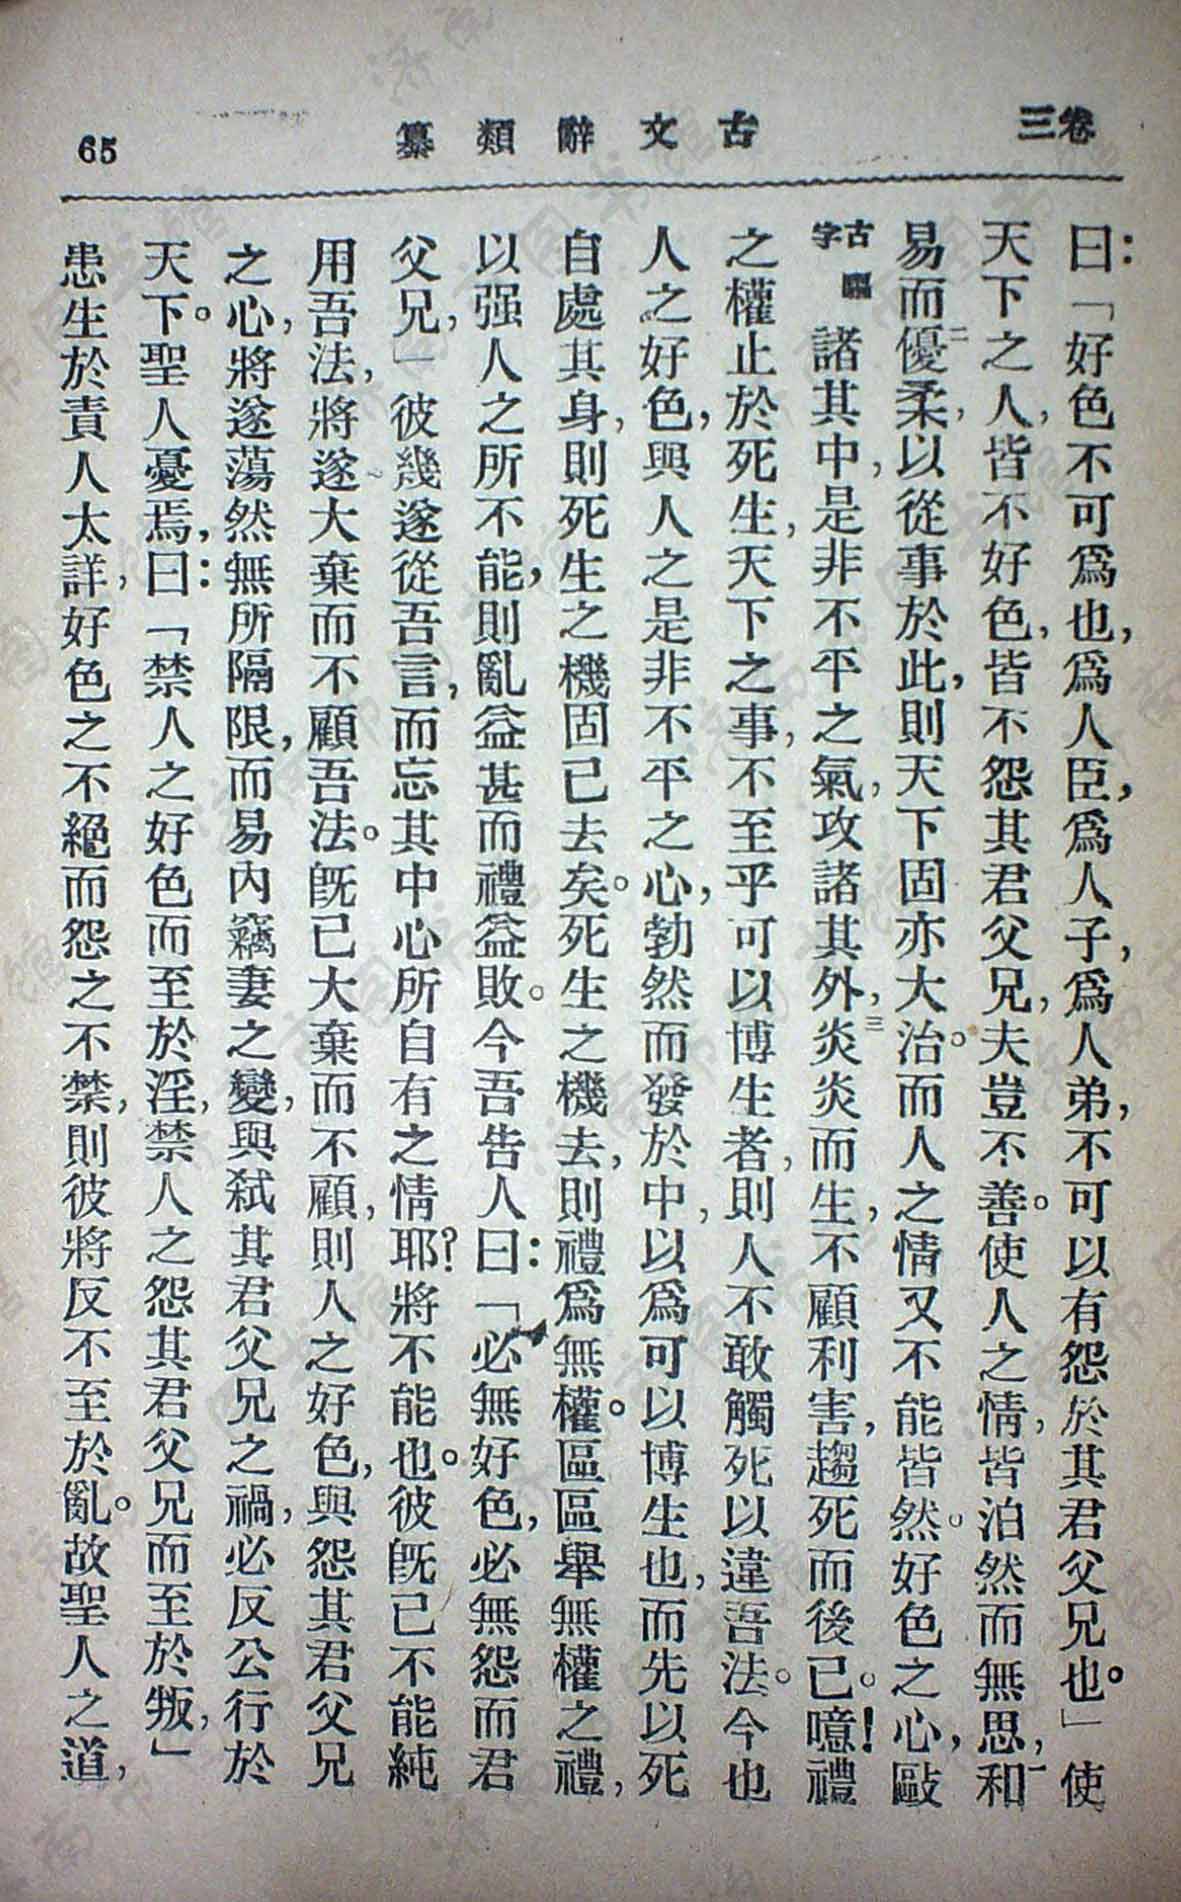 卷三
古文辭類纂
65
曰：「好色不可爲也，爲人臣，爲人子，爲人弟，不可以有怨於其君父兄也。」使
天下之人，皆不好色，皆不怨其君父兄，夫豈不善。使人之情，皆泊然而無思，一和
易而優柔，二以從事於此，則天下固亦大治。而人之情又不能皆然。好色之心，毆
古驅字諸其中，是非不平之氣，攻諸其外，三炎炎而生，不顧利害，趨死而後已。噫！禮
之權止於死生，天下之事，不至乎可以博生者，則人不敢觸死以違吾法。今也
人之好色，與人之是非不平之心，勃然而發於中，以爲可以博生也，而先以死
自處其身，則死生之機固已去矣。死生之機去，則禮爲無權。區區舉無權之禮，
以强人之所不能，則亂益甚而禮益敗。今吾告人曰：「必無好色，必無怨而君
父兄，」彼幾遂從吾言，而忘其中心所自有之情耶？將不能也。彼既已不能純
用吾法，將遂大棄而不顧吾法。既已大棄而不顧，則人之好色，與怨其君父兄
之心，將遂蕩然無所隔限，而易內竊妻之變，與弒其君父兄之禍，必反公行於
天下。聖人憂焉，曰：「禁人之好色而至於淫，禁人之怨其君父兄而至於叛，」
患生於責人太詳，好色之不絕而怨之不禁，則彼將反不至於亂。故聖人之道，
济南市图书馆